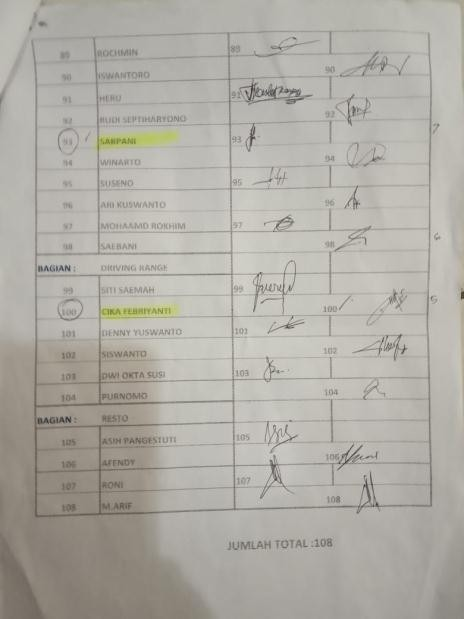 89 ROCHMIN 89
90 ISWANTORO 90
91 HERU 91
92 RUDI SEPTIHARYONO 92
93 SARPANI 93 7
94 WINARTO 94
95 SUSENO 95
96 ARI KUSWANTO 96
97 MOHAAMD ROKHIM 97
98 SAEBANI 98 6
BAGIAN : DRIVING RANGE
99 SITI SAEMAH 99
100 CIKA FEBRIYANTI 100 5
101 DENNY YUSWANTO 101
102 SISWANTO 102
103 DWI OKTA SUSI 103
104 PURNOMO 104
BAGIAN : RESTO
105 ASIH PANGESTUTI 105
106 AFENDY 106
107 RONI 107
108 M.ARIF 108
JUMLAH TOTAL :108